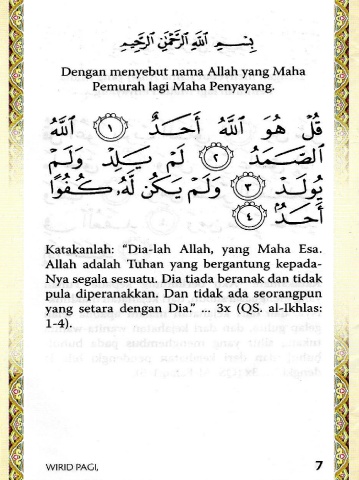 بِسْمِ اللَّهِ الرَّحْمَٰنِ الرَّحِيمِ
Dengan menyebut nama Allah yang Maha
Pemurah lagi Maha Penyayang.
قُلْ هُوَ اللَّهُ أَحَدٌ ١ اللَّهُ
الصَّمَدُ ٢ لَمْ يَلِدْ وَلَمْ
يُولَدْ ٣ وَلَمْ يَكُن لَّهُ كُفُوًا
أَحَدٌ ٤
Katakanlah: “Dia-lah Allah, yang Maha Esa.
Allah adalah Tuhan yang bergantung kepada-
Nya segala sesuatu. Dia tiada beranak dan tidak
pula diperanakkan. Dan tidak ada seorangpun
yang setara dengan Dia.” ... 3x (QS. al-Ikhlas:
1-4).
WIRID PAGI, 7